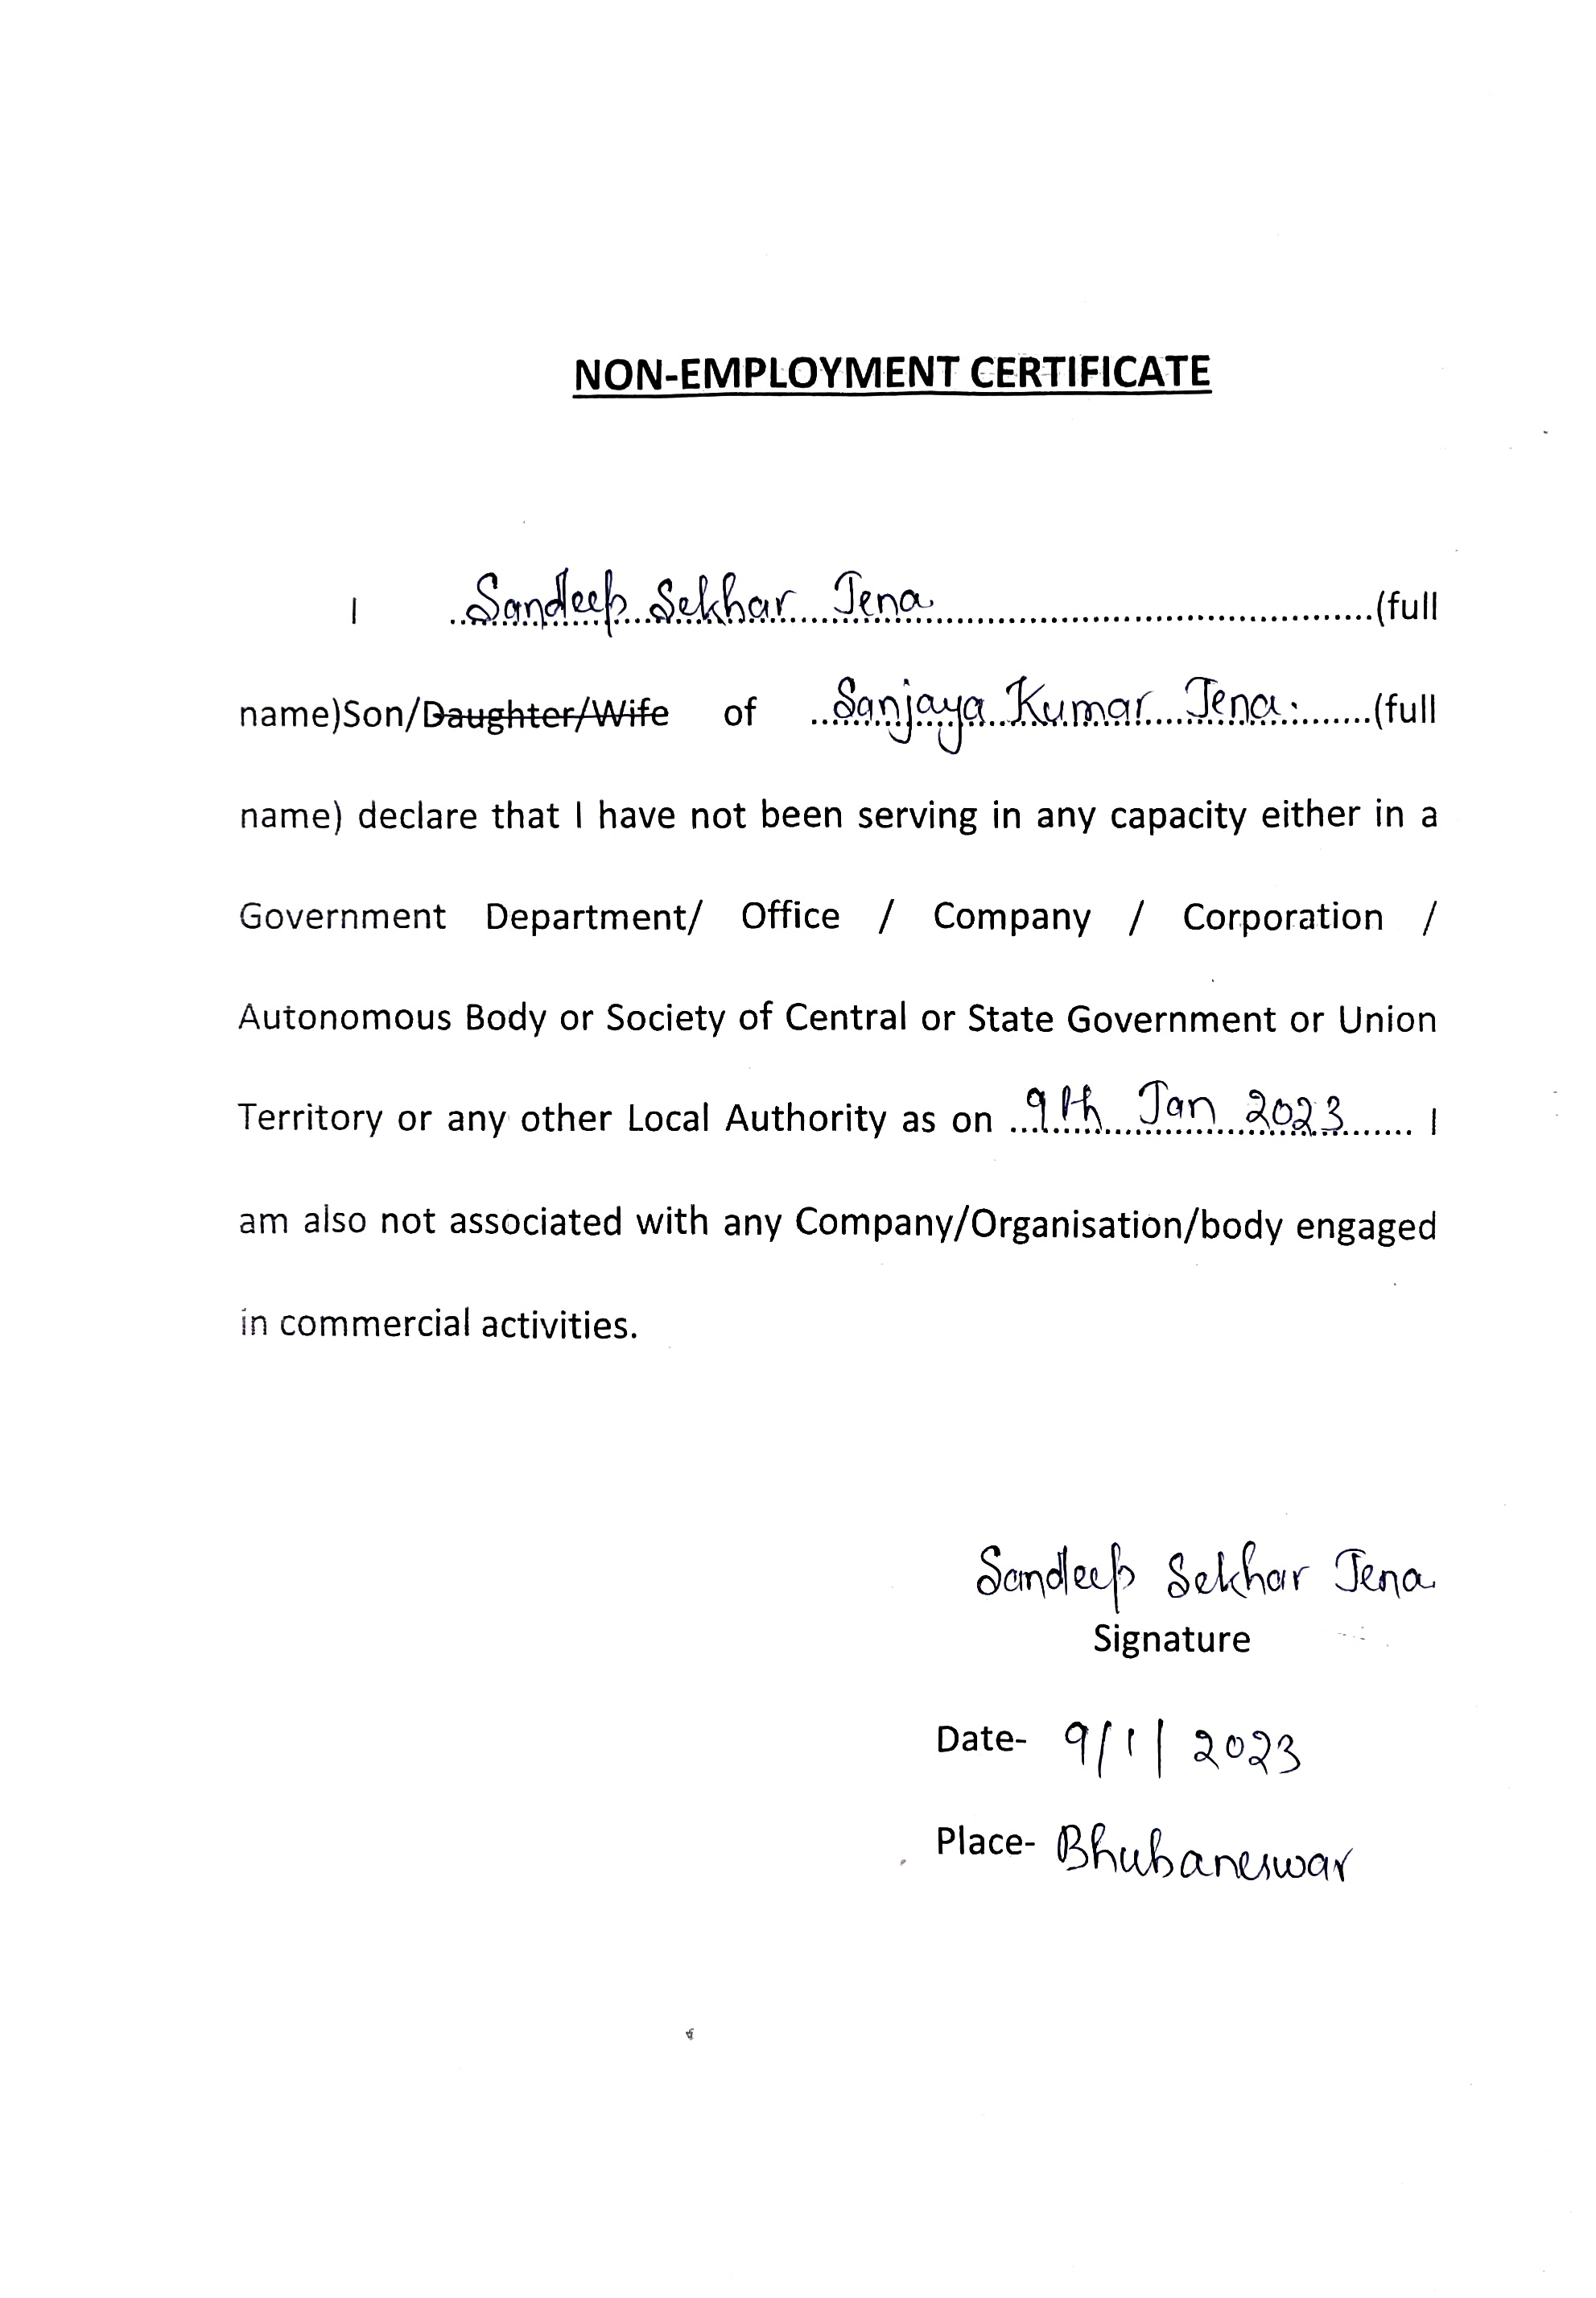 NON-EMPLOYMENT CERTIFICATE
I ..Sandeep Sekhar Jena..............................(full
name)Son/Daughter/Wife of ..Sanjaya Kumar Jena.........(full
name) declare that I have not been serving in any capacity either in a
Government Department/ Office / Company / Corporation /
Autonomous Body or Society of Central or State Government or Union
Territory or any other Local Authority as on ...9th Jan 2023....... I
am also not associated with any Company/Organisation/body engaged
in commercial activities.
Sandeep Sekhar Jena
Signature
Date- 9/1/2023
Place- Bhubaneswar